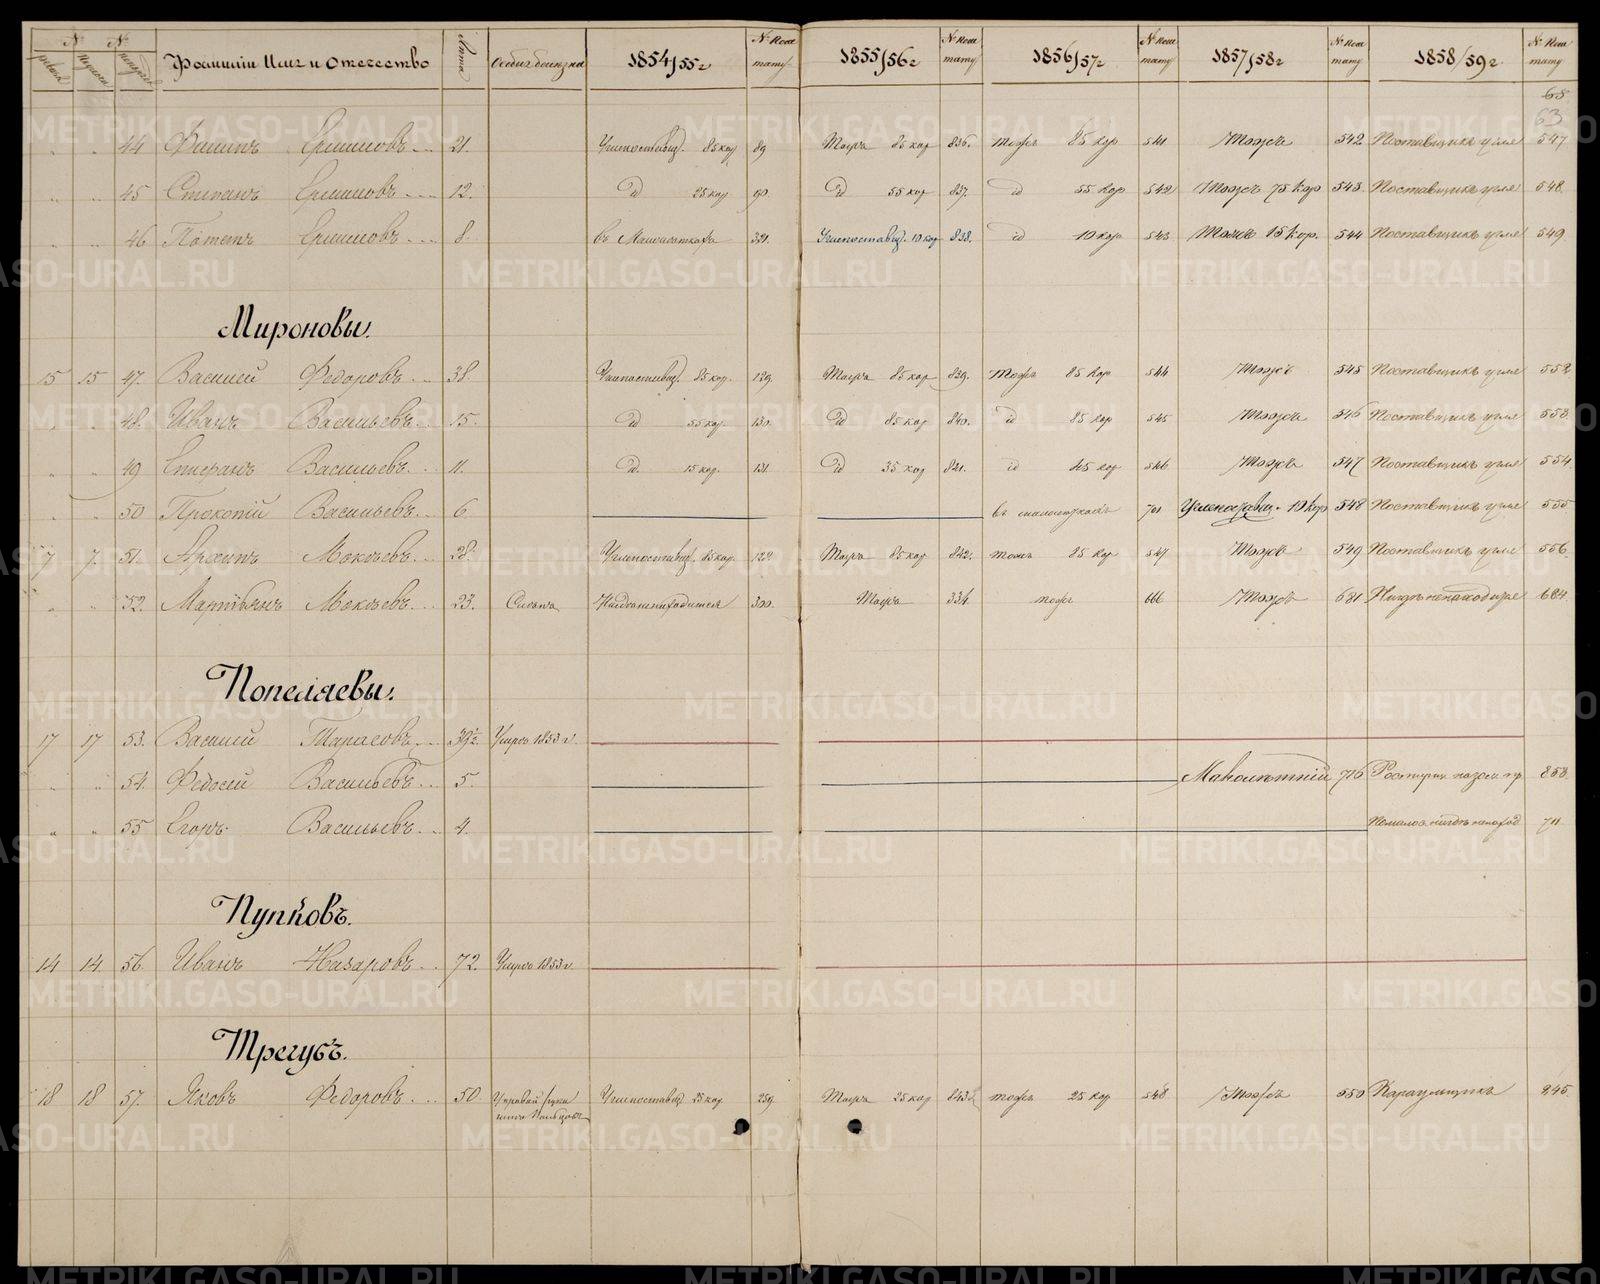 № № Фамиліи Имя и Отечество Лѣта Особыя болезни 1854/55 г. № Ком мату. 1855/56 г. № Ком мату 1856/57 г. № Ком мату 1857/58 г. № Ком мату 1858/59 г. № Ком мату
68
63
" " 44 Филипъ Ермиловъ 21. Углепоставщ. 85 кор 89 Тожъ 85 кор 836. тожъ 85 кор 541. Тожъ 542 Поставщикъ угля 547
" " 45 Степанъ Ермиловъ 12. Id 25 кор 90. Id 55 кор 837. id 55 кор 542 Тожъ 75 кор 543. Поставщикъ угля 548.
" " 46 Потапъ Ермиловъ 8. въ 321. Углепоставщ. 10 кор 838. id 10 кор 543 Тожъ 15 кор. 544 Поставщикъ угля 549
Мироновы.
15 15 47. Василій Федоровъ 38. Углепоставщ. 85 кор. 129. Тожъ 85 кор 839. тожъ 85 кор 544 Тожъ 545 Поставщикъ угля 552
" " 48. Иванъ Васильевъ 15. Id 55 кор. 130. Id 85 кор 840. id 85 кор 545 Тожъ 546 Поставщикъ угля 553
" " 49 Васильевъ 11. Id. 15 кор. 131 Id 35 кор 821. id 45 кор 546 Тожъ 547 Поставщикъ угля 554
" " 50 Прокопій Васильевъ 6. въ 701 Углепоставщ. 10 кор 548 Поставщикъ угля 555
7 7. 51. Архипъ Мокѣевъ 28. Углепоставщ. 85 кор. 122 Тожъ 85 кор 842. тожъ 85 кор 547 Тожъ 549 Поставщикъ угля 556
" " 52. Мартынъ Мокѣевъ 23. Слѣпъ 300. Тожъ 334. тожъ 666 Тожъ 681 Нигдѣ ненаходится 684
Попеляевы.
17 17 53. Василій Тарасовъ 39½ Умръ 1853 г.
" " 54. Федосій Васильевъ 5. Маколѣтній 716 858
" " 55 Егоръ Васильевъ 4. 711
Пупковъ.
14 14 56. Иванъ Назаровъ 72. Умръ 1853 г.
Трегубъ.
18 18 57. Яковъ Федоровъ 50. У правой руки нѣтъ пальцовъ Углепоставщ 25 кор 259. Тожъ 25 кор 843. тожъ 25 кор 548 Тожъ 550 Караульщикъ 245
METRIKI.GASO-URAL.RU